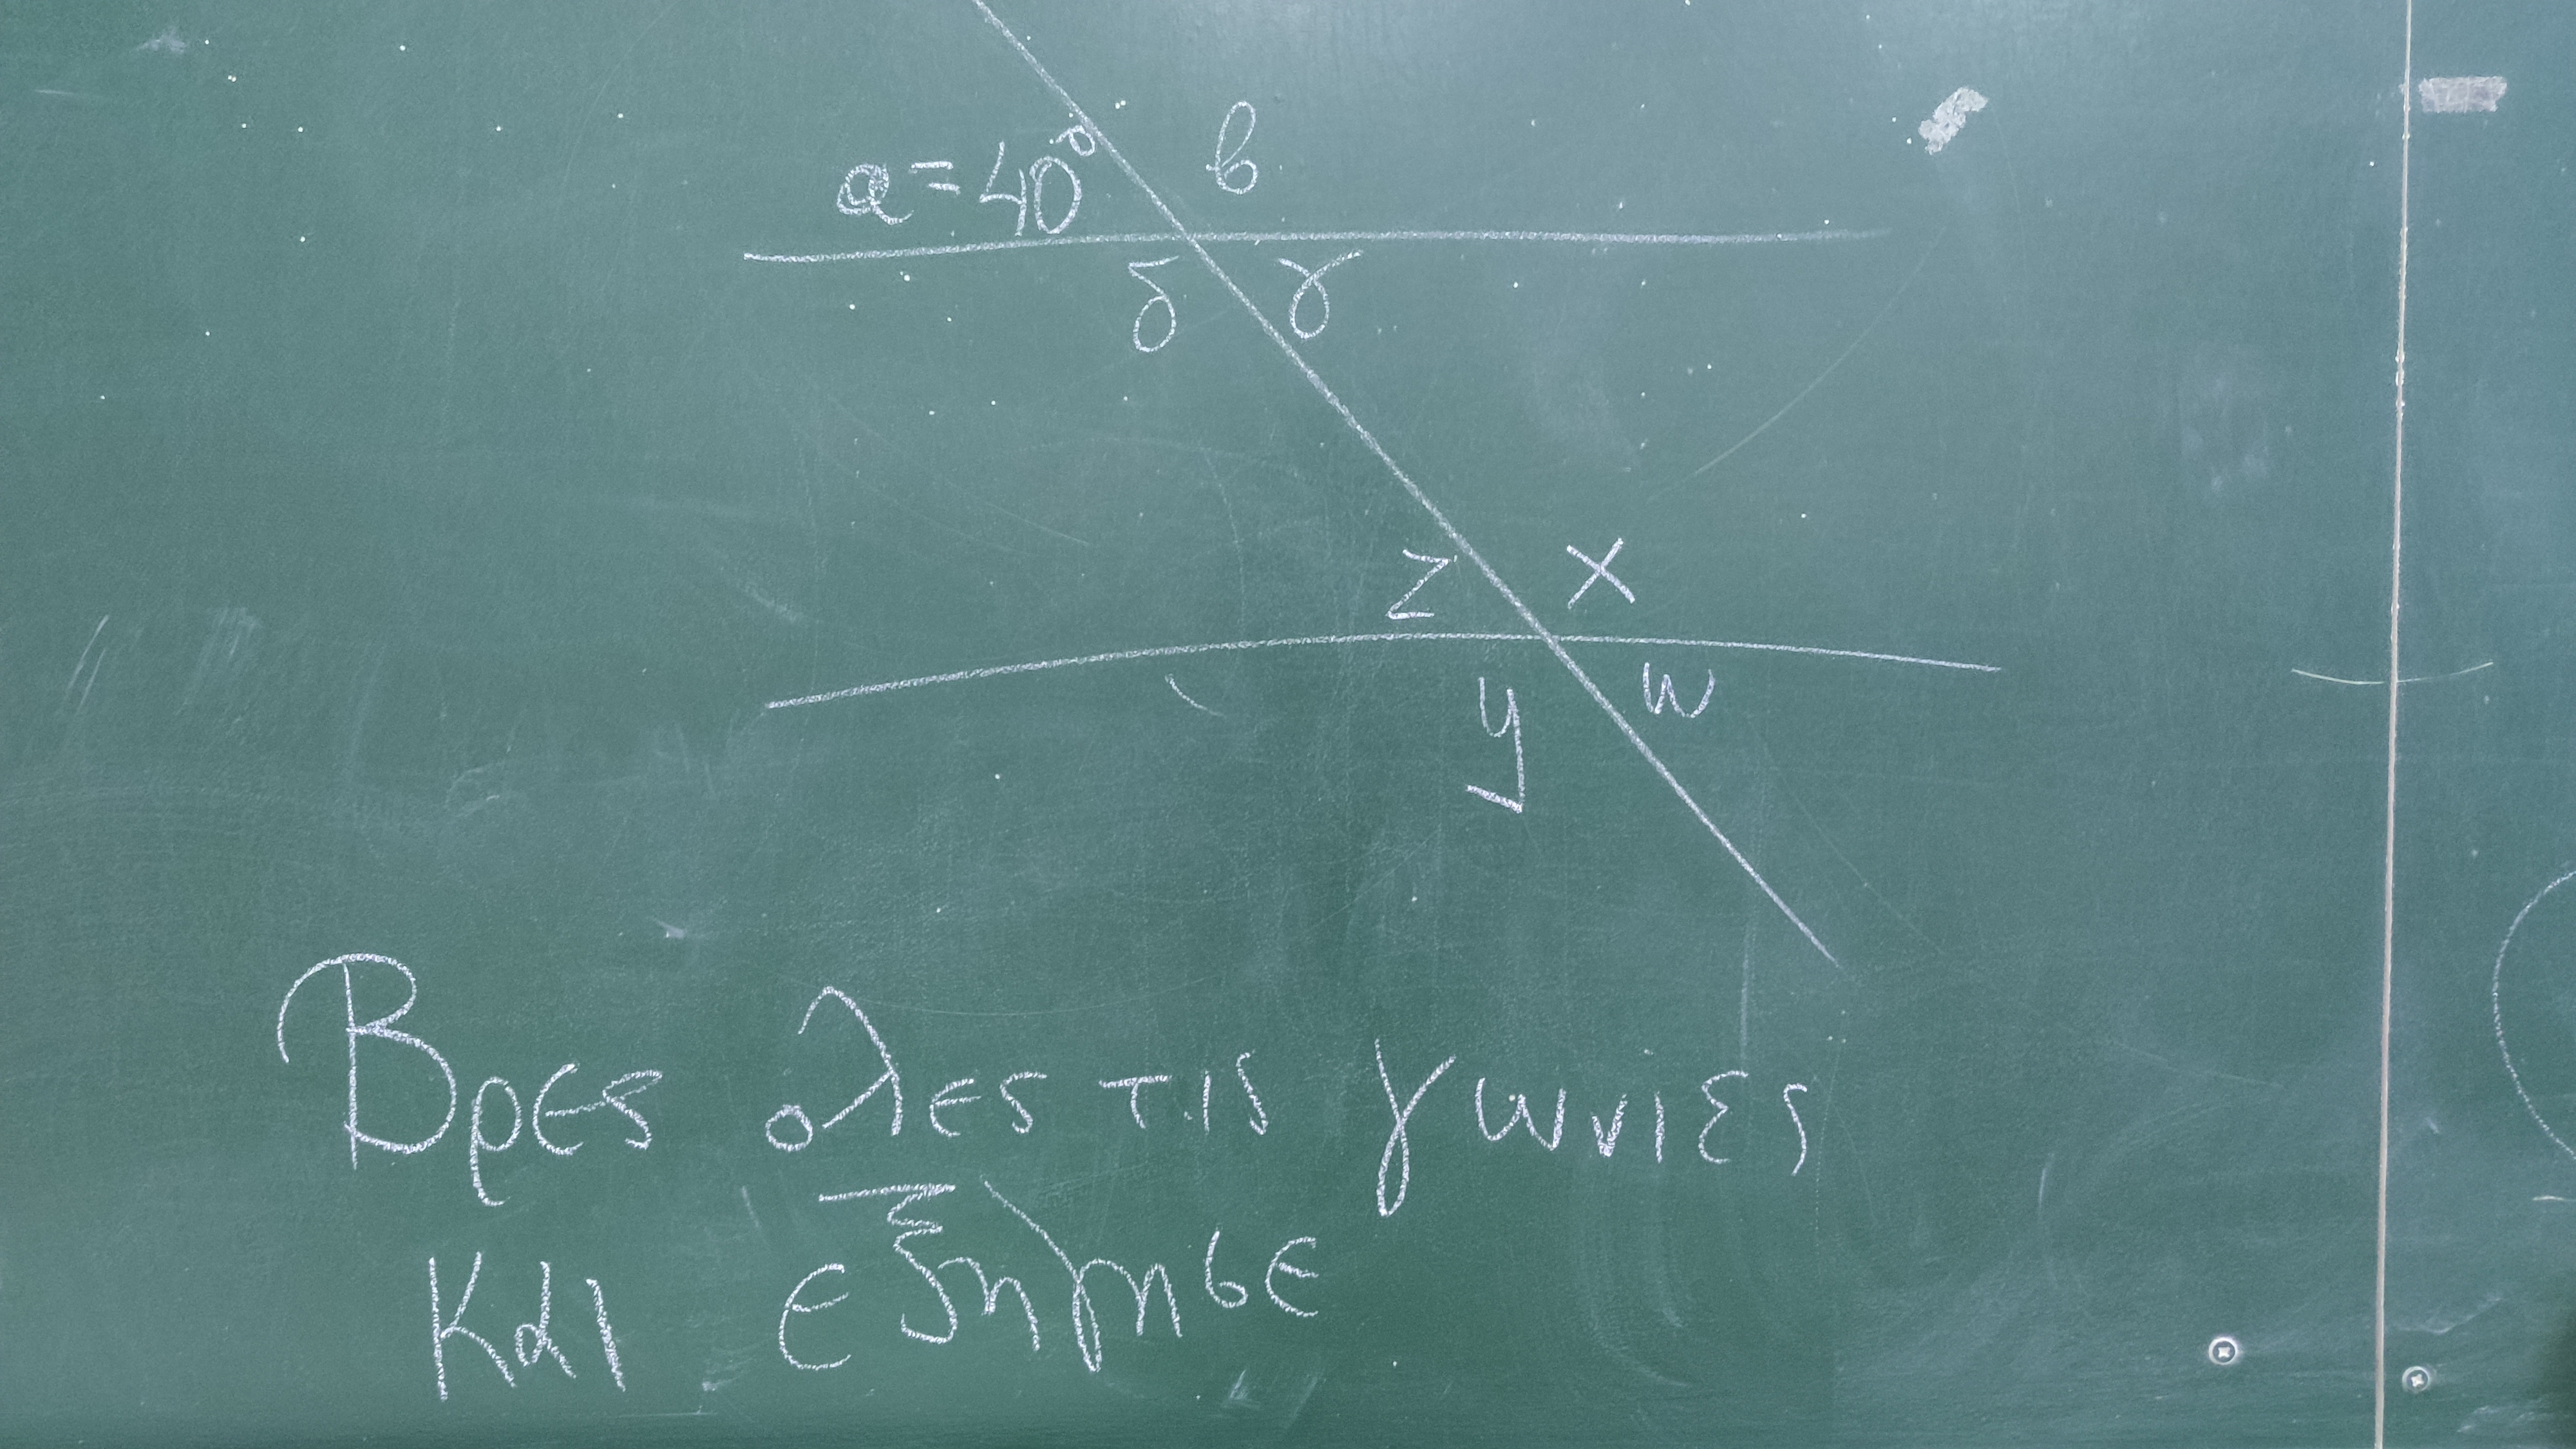 α = 40° β
δ γ
z x
y w
Βρες ολες τις γωνιες
και εξηγησε